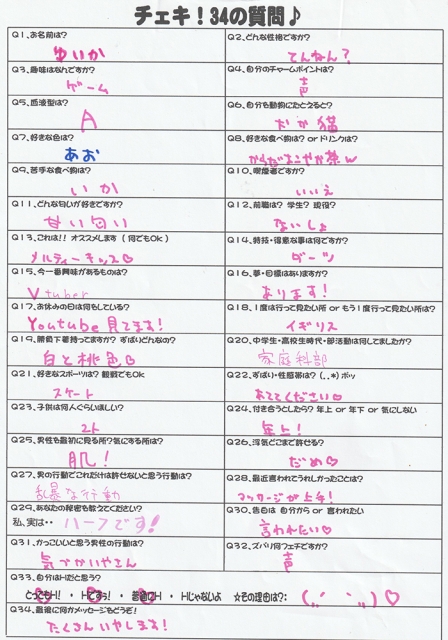 チェキ！34の質問♪
Q1、お名前は？ Q2、どんな性格ですか？
ゆいか てんねん？
Q3、趣味はなんですか？ Q4、自分のチャームポイントは？
ゲーム 声
Q5、血液型は？ Q6、自分を動物にたとえると？
A おか猫
Q7、好きな色は？ Q8、好きな食べ物は？ or ドリンクは？
あお からだすこやか茶w
Q9、苦手な食べ物は？ Q10、喫煙者ですか？
いか いいえ
Q11、どんな匂いが好きですか？ Q12、前職は？ 学生？ 現役？
甘い匂い ないしょ
Q13、これは!! オススメします（何でもOk） Q14、特技・得意な事は何ですか？
メルティーキッス♡ ダーツ
Q15、今一番興味があるものは？ Q16、夢・目標はありますか？
Vtuber あります！
Q17、お休みの日は何もしている？ Q18、1度は行って見たい所 or もう1度行って見たい所は？
Youtube見てます！ イギリス
Q19、勝負下着持ってますか？ ずばりどんなの？ Q20、中学生・高校生時代・部活動は何してましたか？
白と桃色♡ 家庭科部
Q21、好きなスポーツは？ 観戦でもOk Q22、ずばり・性感帯は？（..*）ポッ
スケート あててください♡
Q23、子供は何人ぐらいほしい？ Q24、付き合うとしたら？ 年上 or 年下 or 気にしない
2人 年上！
Q25、男性を最初に見る所？気にする所は？ Q26、浮気どこまで許せる？
肌！ だめ♡
Q27、男の行動でこれだけは許せないと思う行動は？ Q28、最近言われてうれしかったことは？
乱暴な行動 マッサージが上手！
Q29、あなたの秘密を教えてください？ Q30、告白は 自分から or 言われたい
私、実は・・ハーフです！ 言われたい♡
Q31、かっこいいと思う男性の行動は？ Q32、ズバリ何フェチですか？
気づかいやさん 声
Q33、自分はHだと思う？
とってもH！ ・ Hですっ！ ・ 普通にH ・ Hじゃないよ ☆その理由は？：
Q34、最後に何かメッセージをどうぞ！
たくさんいやします！